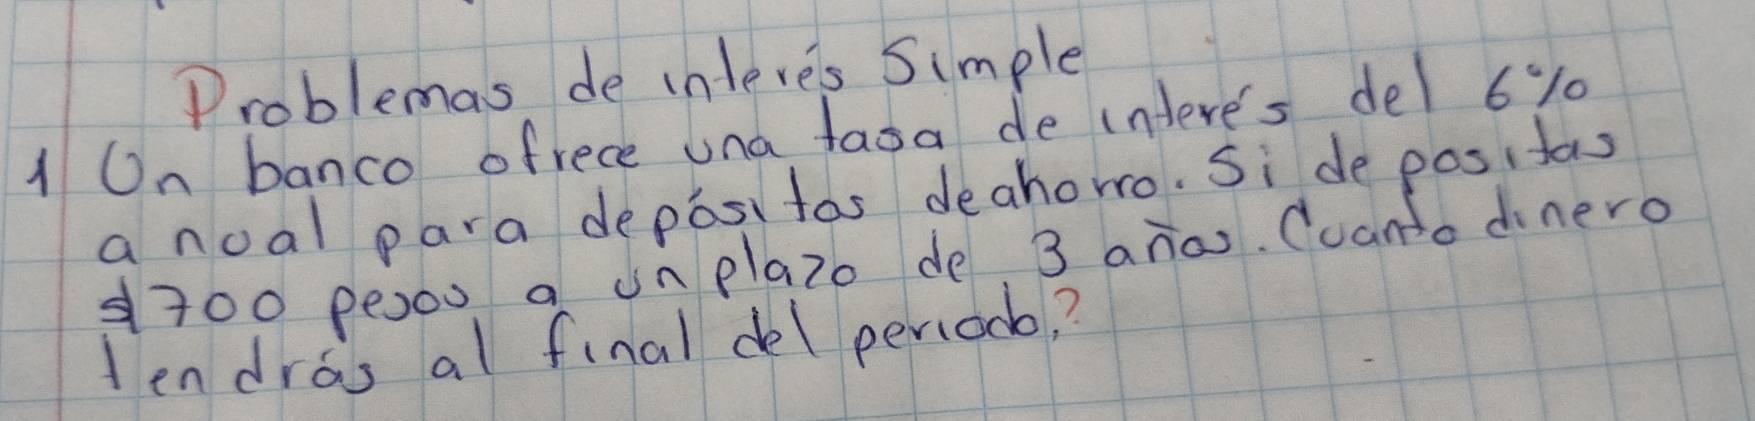 Problemas de interés Simple
1 Un banco ofrece una tasa de interés del 6%
anual para depósitos de ahorro. Si depositas
$700 pesos a un plazo de 3 años. Cuanto dinero
tendrás al final del periodo,?